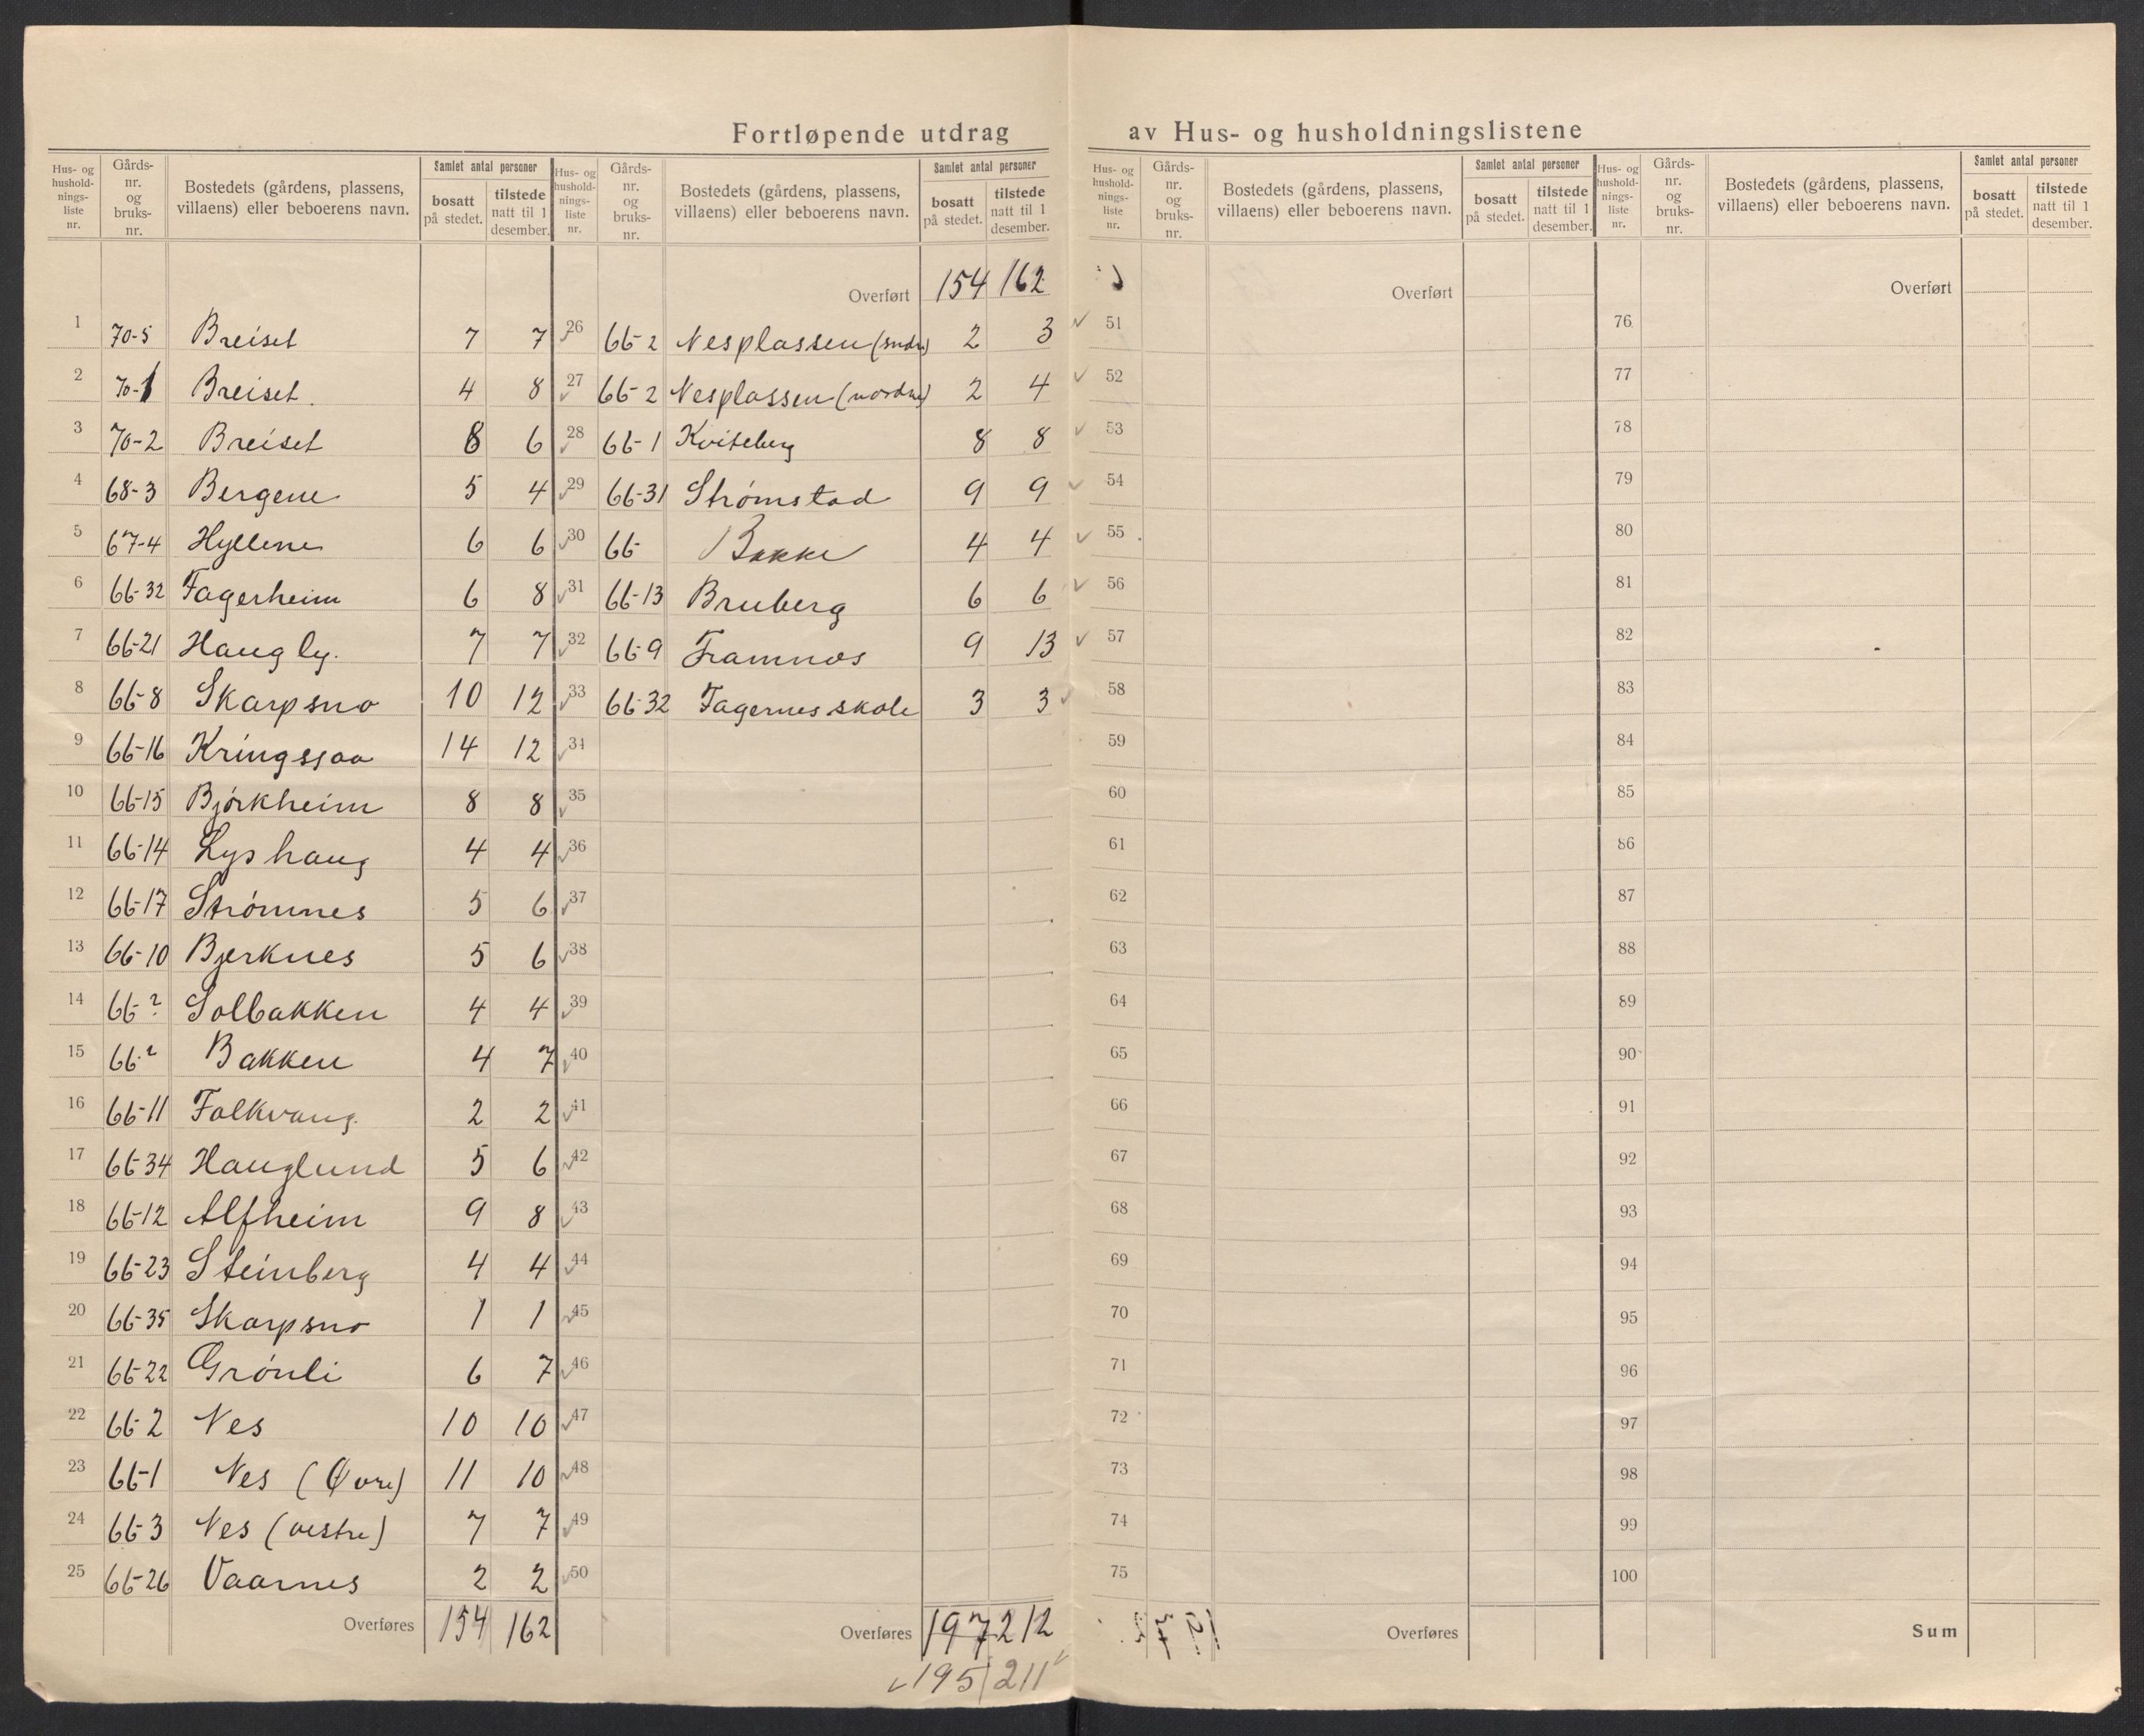 Fortløpende utdrag av Hus- og husholdningslistene
Hus- og hushold-nings-liste nr. | Gårds-nr. og bruks-nr. | Bostedets (gårdens, plassens, villaens) eller beboerens navn. | Samlet antal personer | bosatt på stedet. | tilstede natt til 1 desember.
1 70-5 Breiset 7 7
2 70-1 Breiset 4 8
3 70-2 Breiset 8 6
4 68-3 Bergene 5 4
5 67-4 Hyllene 6 6
6 66-32 Fagerheim 6 8
7 66-21 Haugly. 7 7
8 66-8 Skarpsno 10 12
9 66-16 Kringssaa 14 12
10 66-15 Bjørkheim 8 8
11 66-14 Lyshaug 4 4
12 66-17 Strømnes 5 6
13 66-10 Bjerknes 5 6
14 66-? Solbakken 4 4
15 66-? Bakken 4 7
16 66-11 Folkvang. 2 2
17 66-34 Hauglund 5 6
18 66-12 Alfheim 9 8
19 66-23 Steinberg 4 4
20 66-35 Skarpsno 1 1
21 66-22 Grønli 6 7
22 66-2 Nes 10 10
23 66-1 Nes (Øvre) 11 10
24 66-3 Nes (vestre) 7 7
25 66-26 Vaarnes 2 2
Overføres 154 162
Hus- og hushold-nings-liste nr. | Gårds-nr. og bruks-nr. | Bostedets (gårdens, plassens, villaens) eller beboerens navn. | Samlet antal personer | bosatt på stedet. | tilstede natt til 1 desember.
Overført 154 162
26 66-2 Nesplassen (sndr) 2 3
27 66-2 Nesplassen (nordre) 2 4
28 66-1 Kviteberg 8 8
29 66-31 Strømstad 9 9
30 66- Bakke 4 4
31 66-13 Bruberg 6 6
32 66-9 Framnes 9 13
33 66-32 Fagernes skole 3 3
34
35
36
37
38
39
40
41
42
43
44
45
46
47
48
49
50
Overføres 197 212
195 211
Hus- og hushold-nings-liste nr. | Gårds-nr. og bruks-nr. | Bostedets (gårdens, plassens, villaens) eller beboerens navn. | Samlet antal personer | bosatt på stedet. | tilstede natt til 1 desember.
Overført
51
52
53
54
55
56
57
58
59
60
61
62
63
64
65
66
67
68
69
70
71
72
73
74
75
Overføres
Hus- og hushold-nings-liste nr. | Gårds-nr. og bruks-nr. | Bostedets (gårdens, plassens, villaens) eller beboerens navn. | Samlet antal personer | bosatt på stedet. | tilstede natt til 1 desember.
Overført
76
77
78
79
80
81
82
83
84
85
86
87
88
89
90
91
92
93
94
95
96
97
98
99
100
Sum